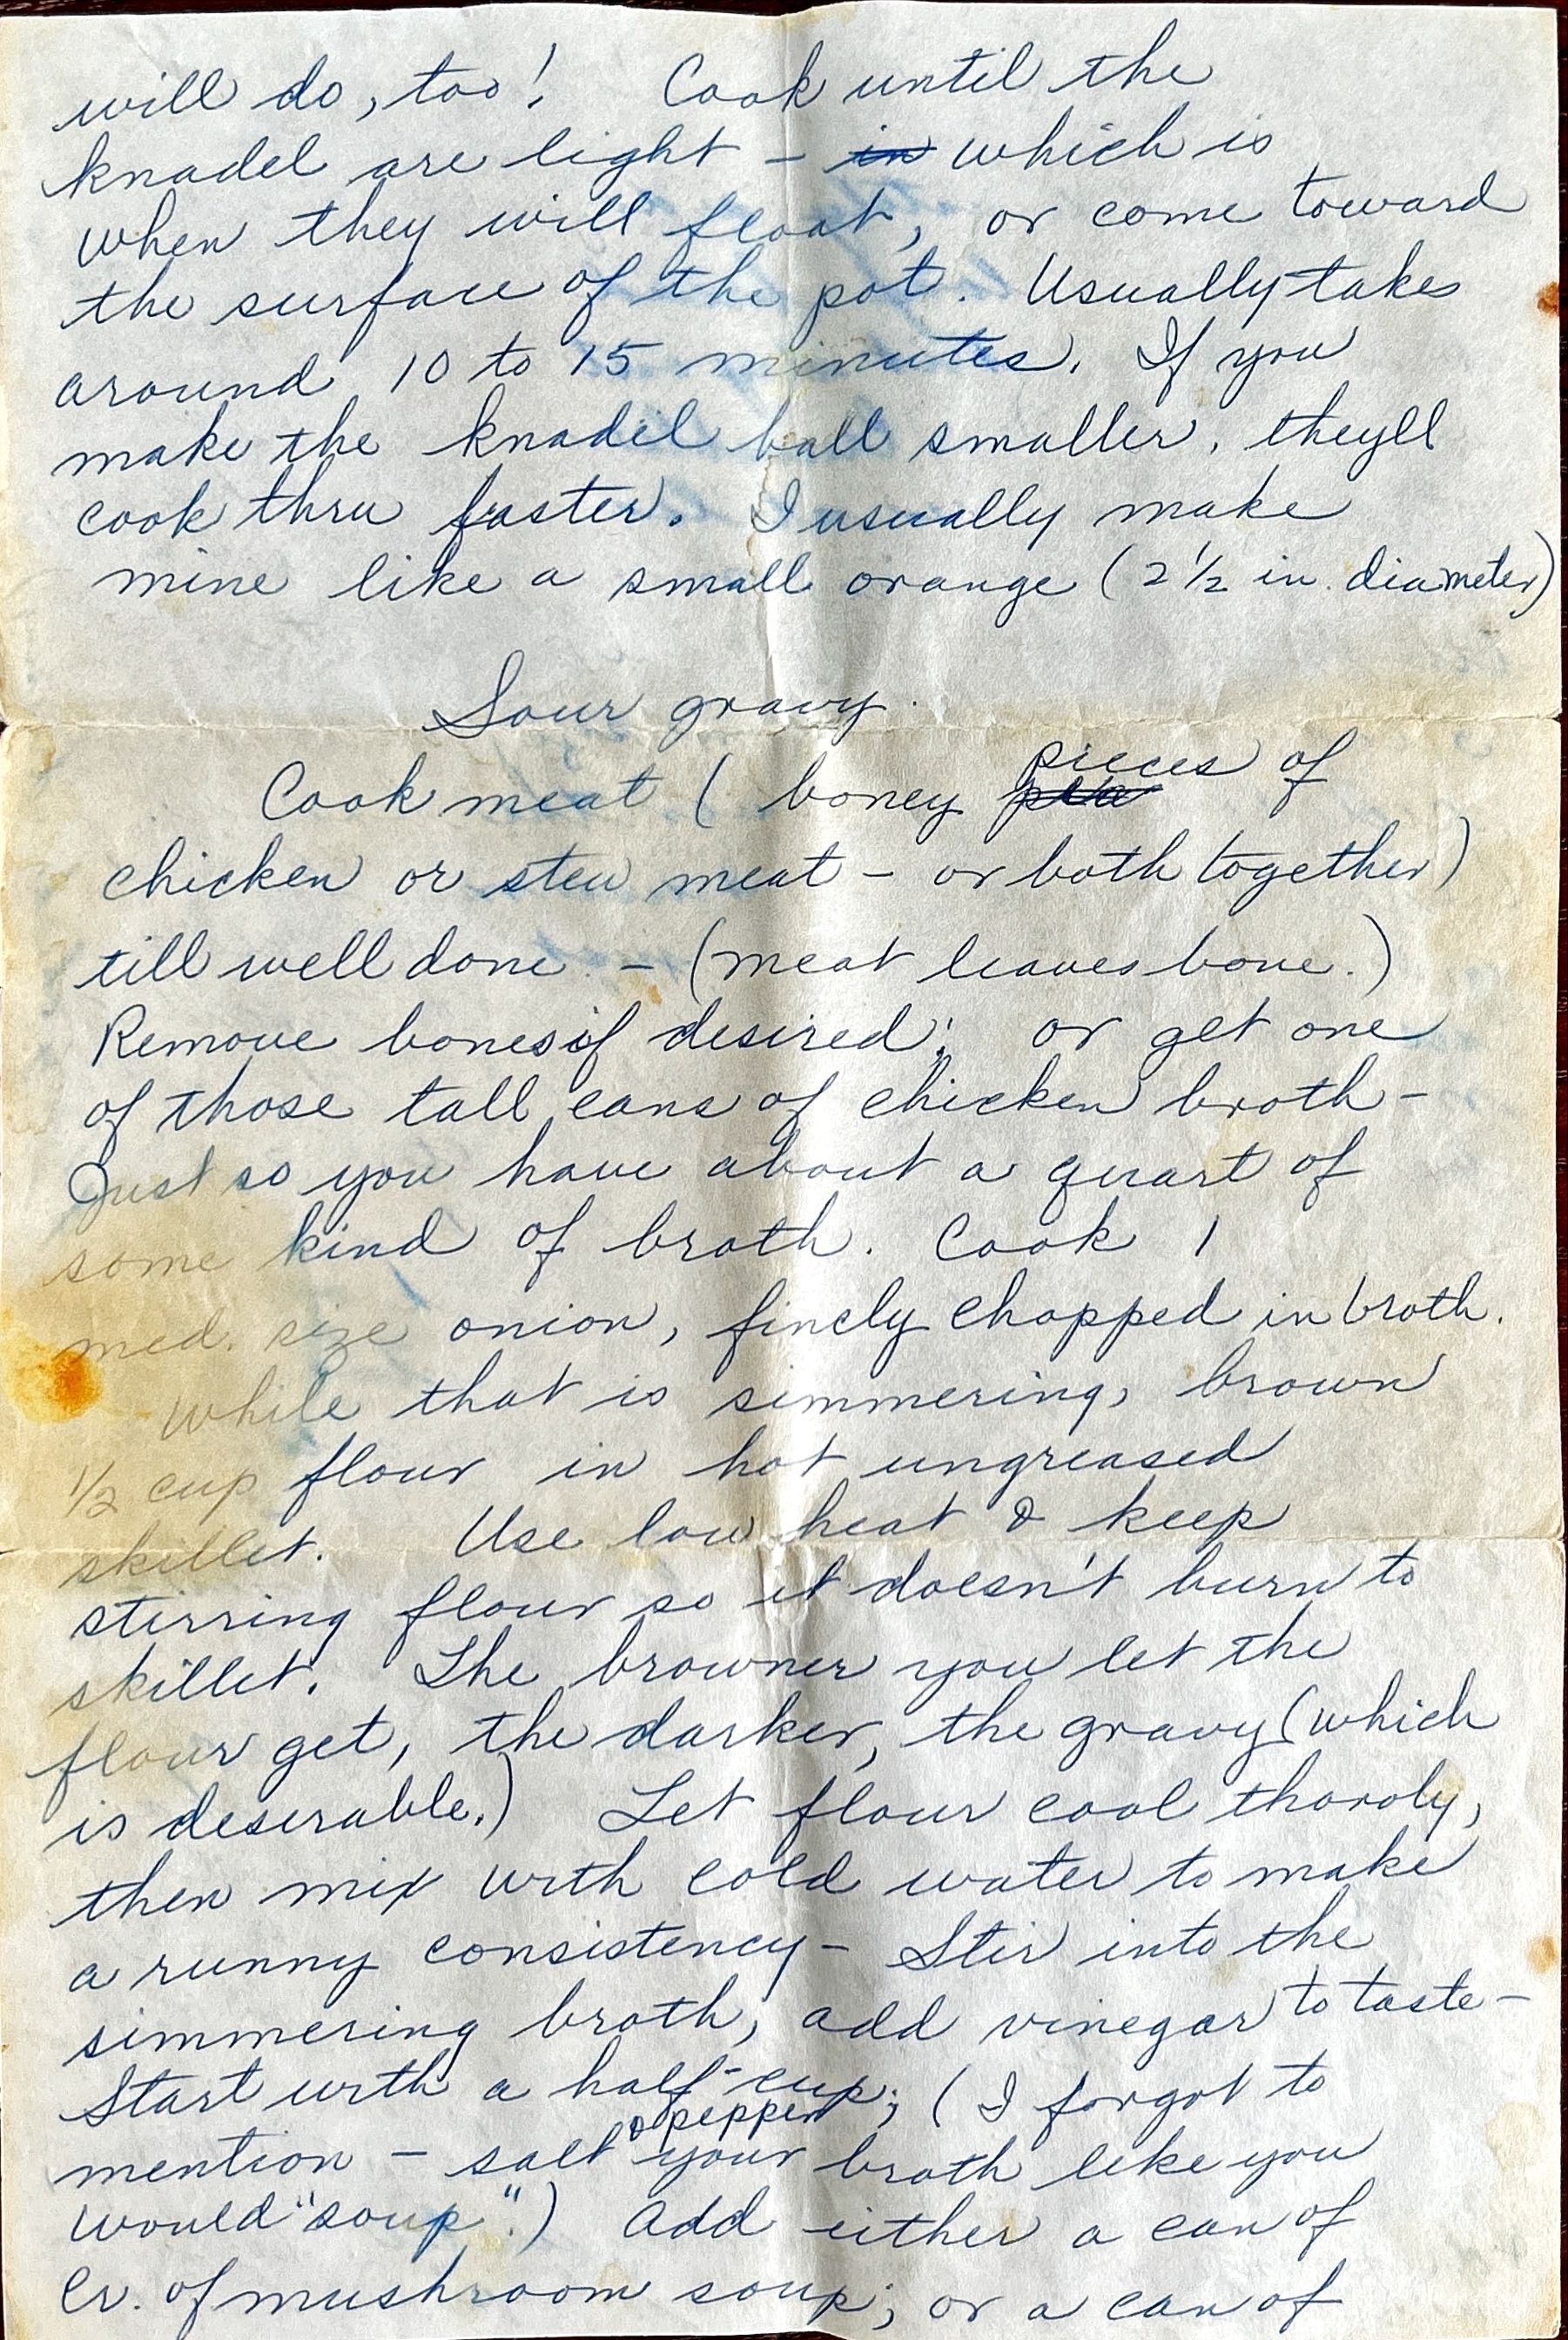 will do, too! Cook until the
knadel are light - in which is
when they will float, or come toward
the surface of the pot. Usually takes
around 10 to 15 minutes. If you
make the knadel ball smaller, they'll
cook thru faster. I usually make
mine like a small orange (2 1/2 in. diameter)
Sour gravy.
Cook meat (boney pieces of
chicken or stew meat - or both together)
till well done - (meat leaves bone.)
Remove bones if desired; or get one
of those tall cans of chicken broth -
Just so you have about a quart of
some kind of broth. Cook 1
med. size onion, finely chopped in broth.
While that is simmering, brown
1/2 cup flour in hot ungreased
skillet. Use low heat & keep
stirring flour so it doesn't burn to
skillet. The browner you let the
flour get, the darker, the gravy (which
is deserable.) Let flour cool thoroly,
then mix with cold water to make
a runny consistency - Stir into the
simmering broth, add vinegar to taste -
Start with a half-cup; (I forgot to
mention - salt & pepper your broth like you
would "soup".) Add either a can of
Cr. of mushroom soup; or a can of